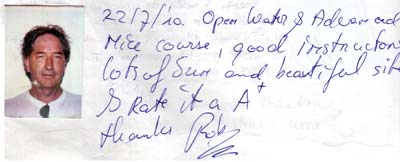 22/7/10. Open Water & Advanced
Nice course, good instructors
lots of Sun and beautiful sit
I Rate it a A+
thanks Rob